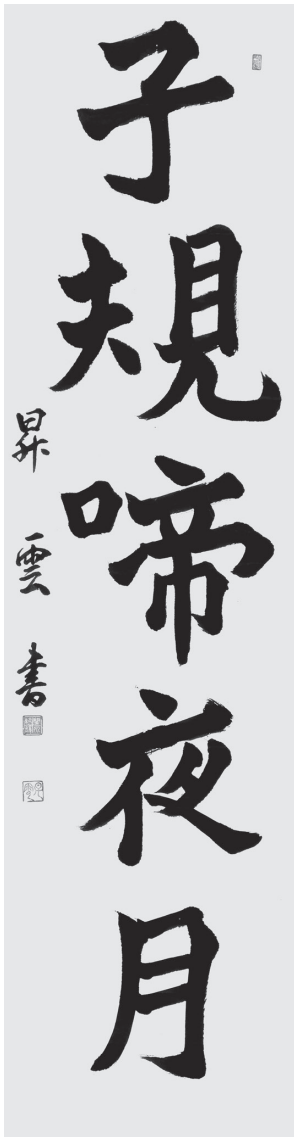 子規啼夜月
昇雲書